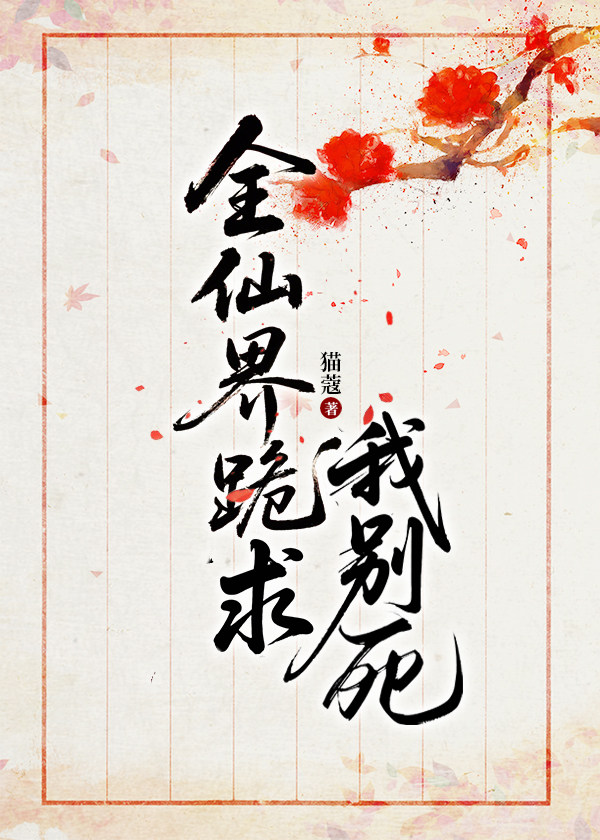 全仙界跪求
我别死
猫蔻
著